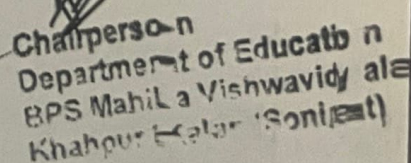 Chairperson
Department of Education
BPS Mahila Vishwavidyala
Khanpur Kalan (Sonipat)